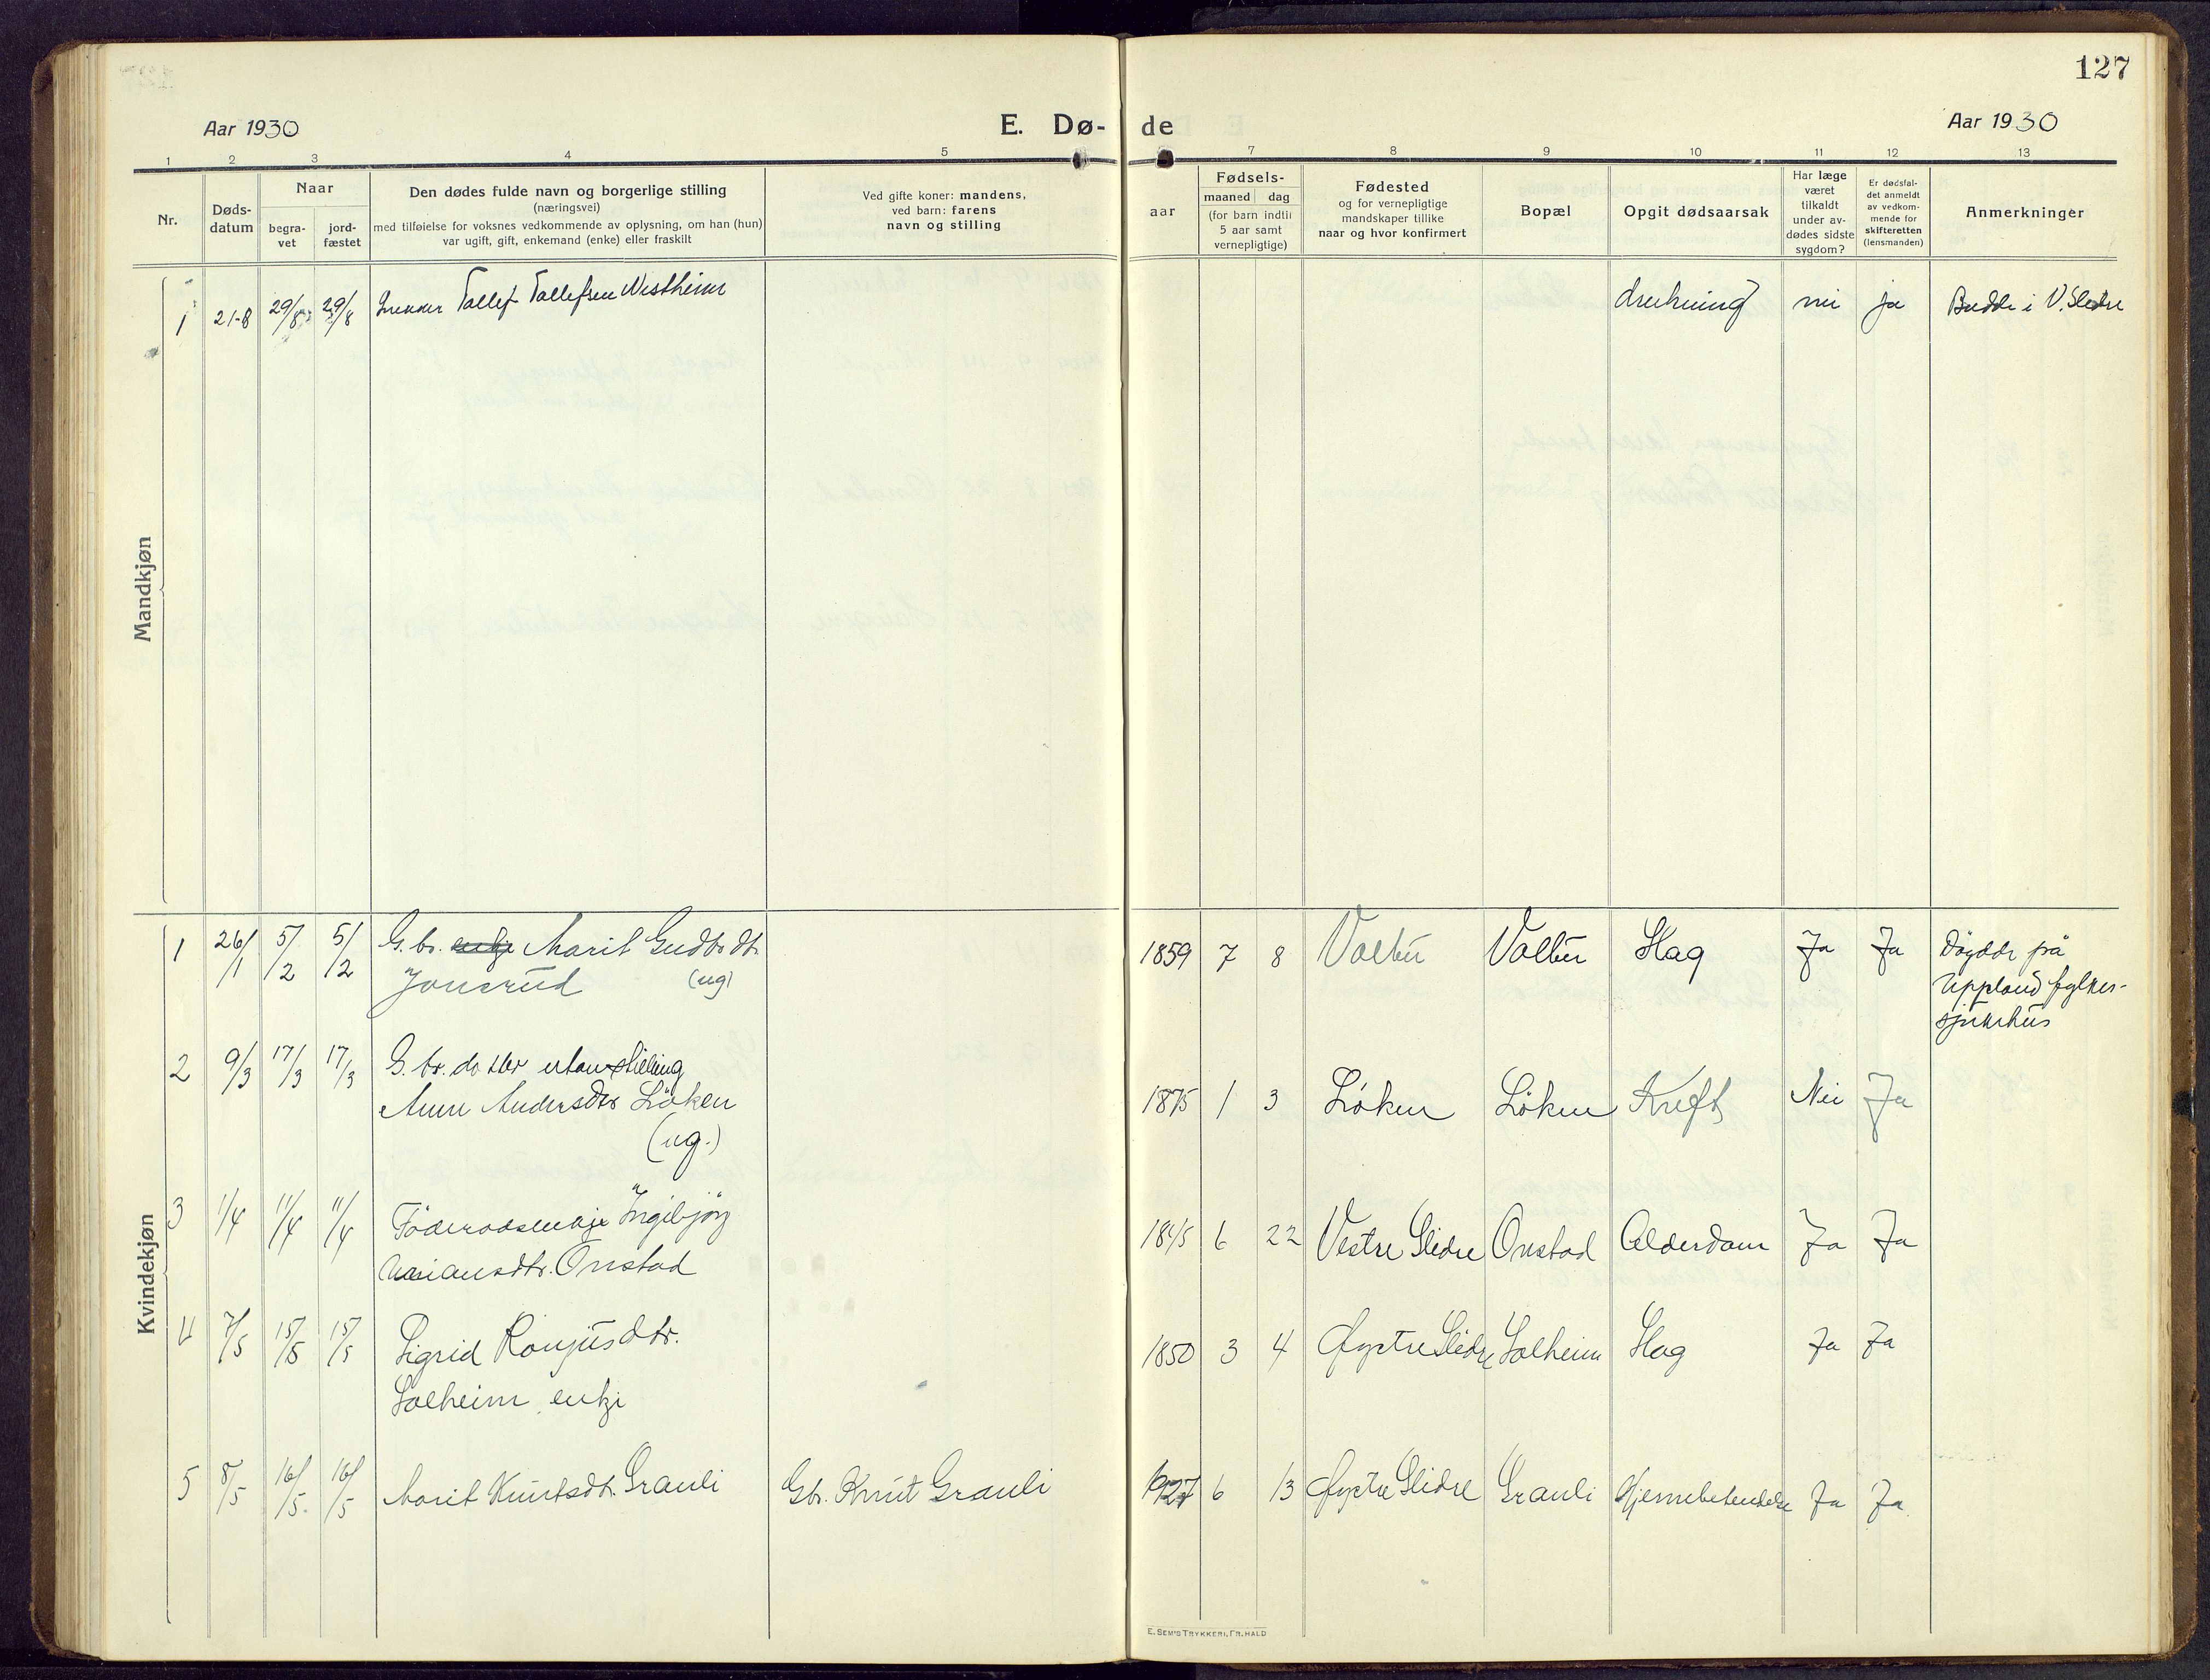 127
Aar 1930
E. Dø-
de
Aar 1930
1 2 3 4 5
7 8 9 10 11 12 13
Nr.
Døds-
datum
Naar
begra-
vet
jord-
fæstet
Den dødes fulde navn og borgerlige stilling
(næringsvei)
med tilføielse for voksnes vedkommende av oplysning, om han (hun)
var ugift, gift, enkemand (enke) eller fraskilt
Ved gifte koner: mandens,
ved barn: farens
navn og stilling
aar
Fødsels-
maaned dag
(for barn indtil
5 aar samt
vernepligtige)
Fødested
og for vernepligtige
mandskaper tillike
naar og hvor konfirmert
Bopæl
Opgit dødsaarsak
Har læge
været
tilkaldt
under av-
dødes sidste
sygdom?
Er dødsfal-
det anmeldt
av vedkom-
mende for
skifteretten
(lensmanden)
Anmerkninger
Mandkjøn
1 21-8 29/8 29/8 Tollef Tollefsen Westheim drukning nei ja Budde i V. Slidre
Kvindekjøn
1 26/1 5/2 5/2 G. br. enkje Marit Gudbr.dt. 1859 7 8 Volbu Volbu Slag Ja Ja Døydde på
Jonsrud (ug) Uppland fylkes-
sjukehus
2 9/3 17/3 17/3 G. br. dotter utan stilling
Anne Andersdtr Löken 1875 1 3 Löken Löken Kreft Nei Ja
(ug.)
3 1/4 11/4 11/4 Föderådsenkje Ingibjörg
Onstad 1845 6 22 Vestre Slidre Onstad Alderdom Ja Ja
4 7/5 15/5 15/5 Sigrid Ronjusdtr. 1850 3 4 Øystre Slidre Solheim Slag Ja Ja
Solheim, enkje
5 8/5 16/5 16/5 Marit Knutsdt. Grauli Gbr. Knut Grauli 1927 6 13 Øystre Slidre Grauli Hjernebetendelse Ja Ja
E. SEM'S TRYKKERI, FR.HALD